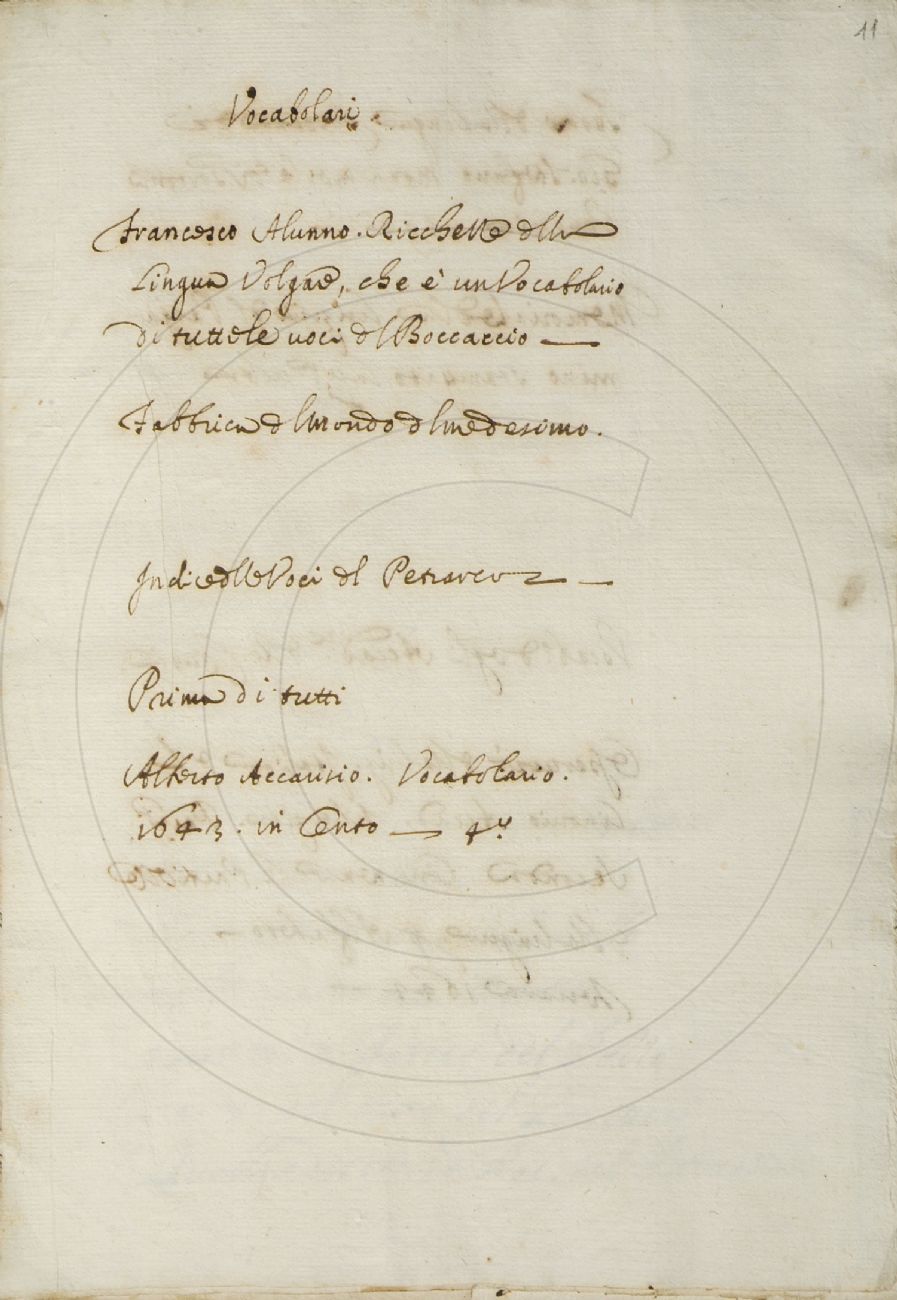 11
Vocabolarij
Francesco Alunno. Ricchezze della
Lingua Volgare, che è un Vocabolario
di tutte le voci del Boccaccio —
Fabbrica del Mondo del medesimo.
Indice delle Voci del Petrarca —
Prima di tutti
Alberto Accarisio. Vocabolario.
1643. in Cento — 4º